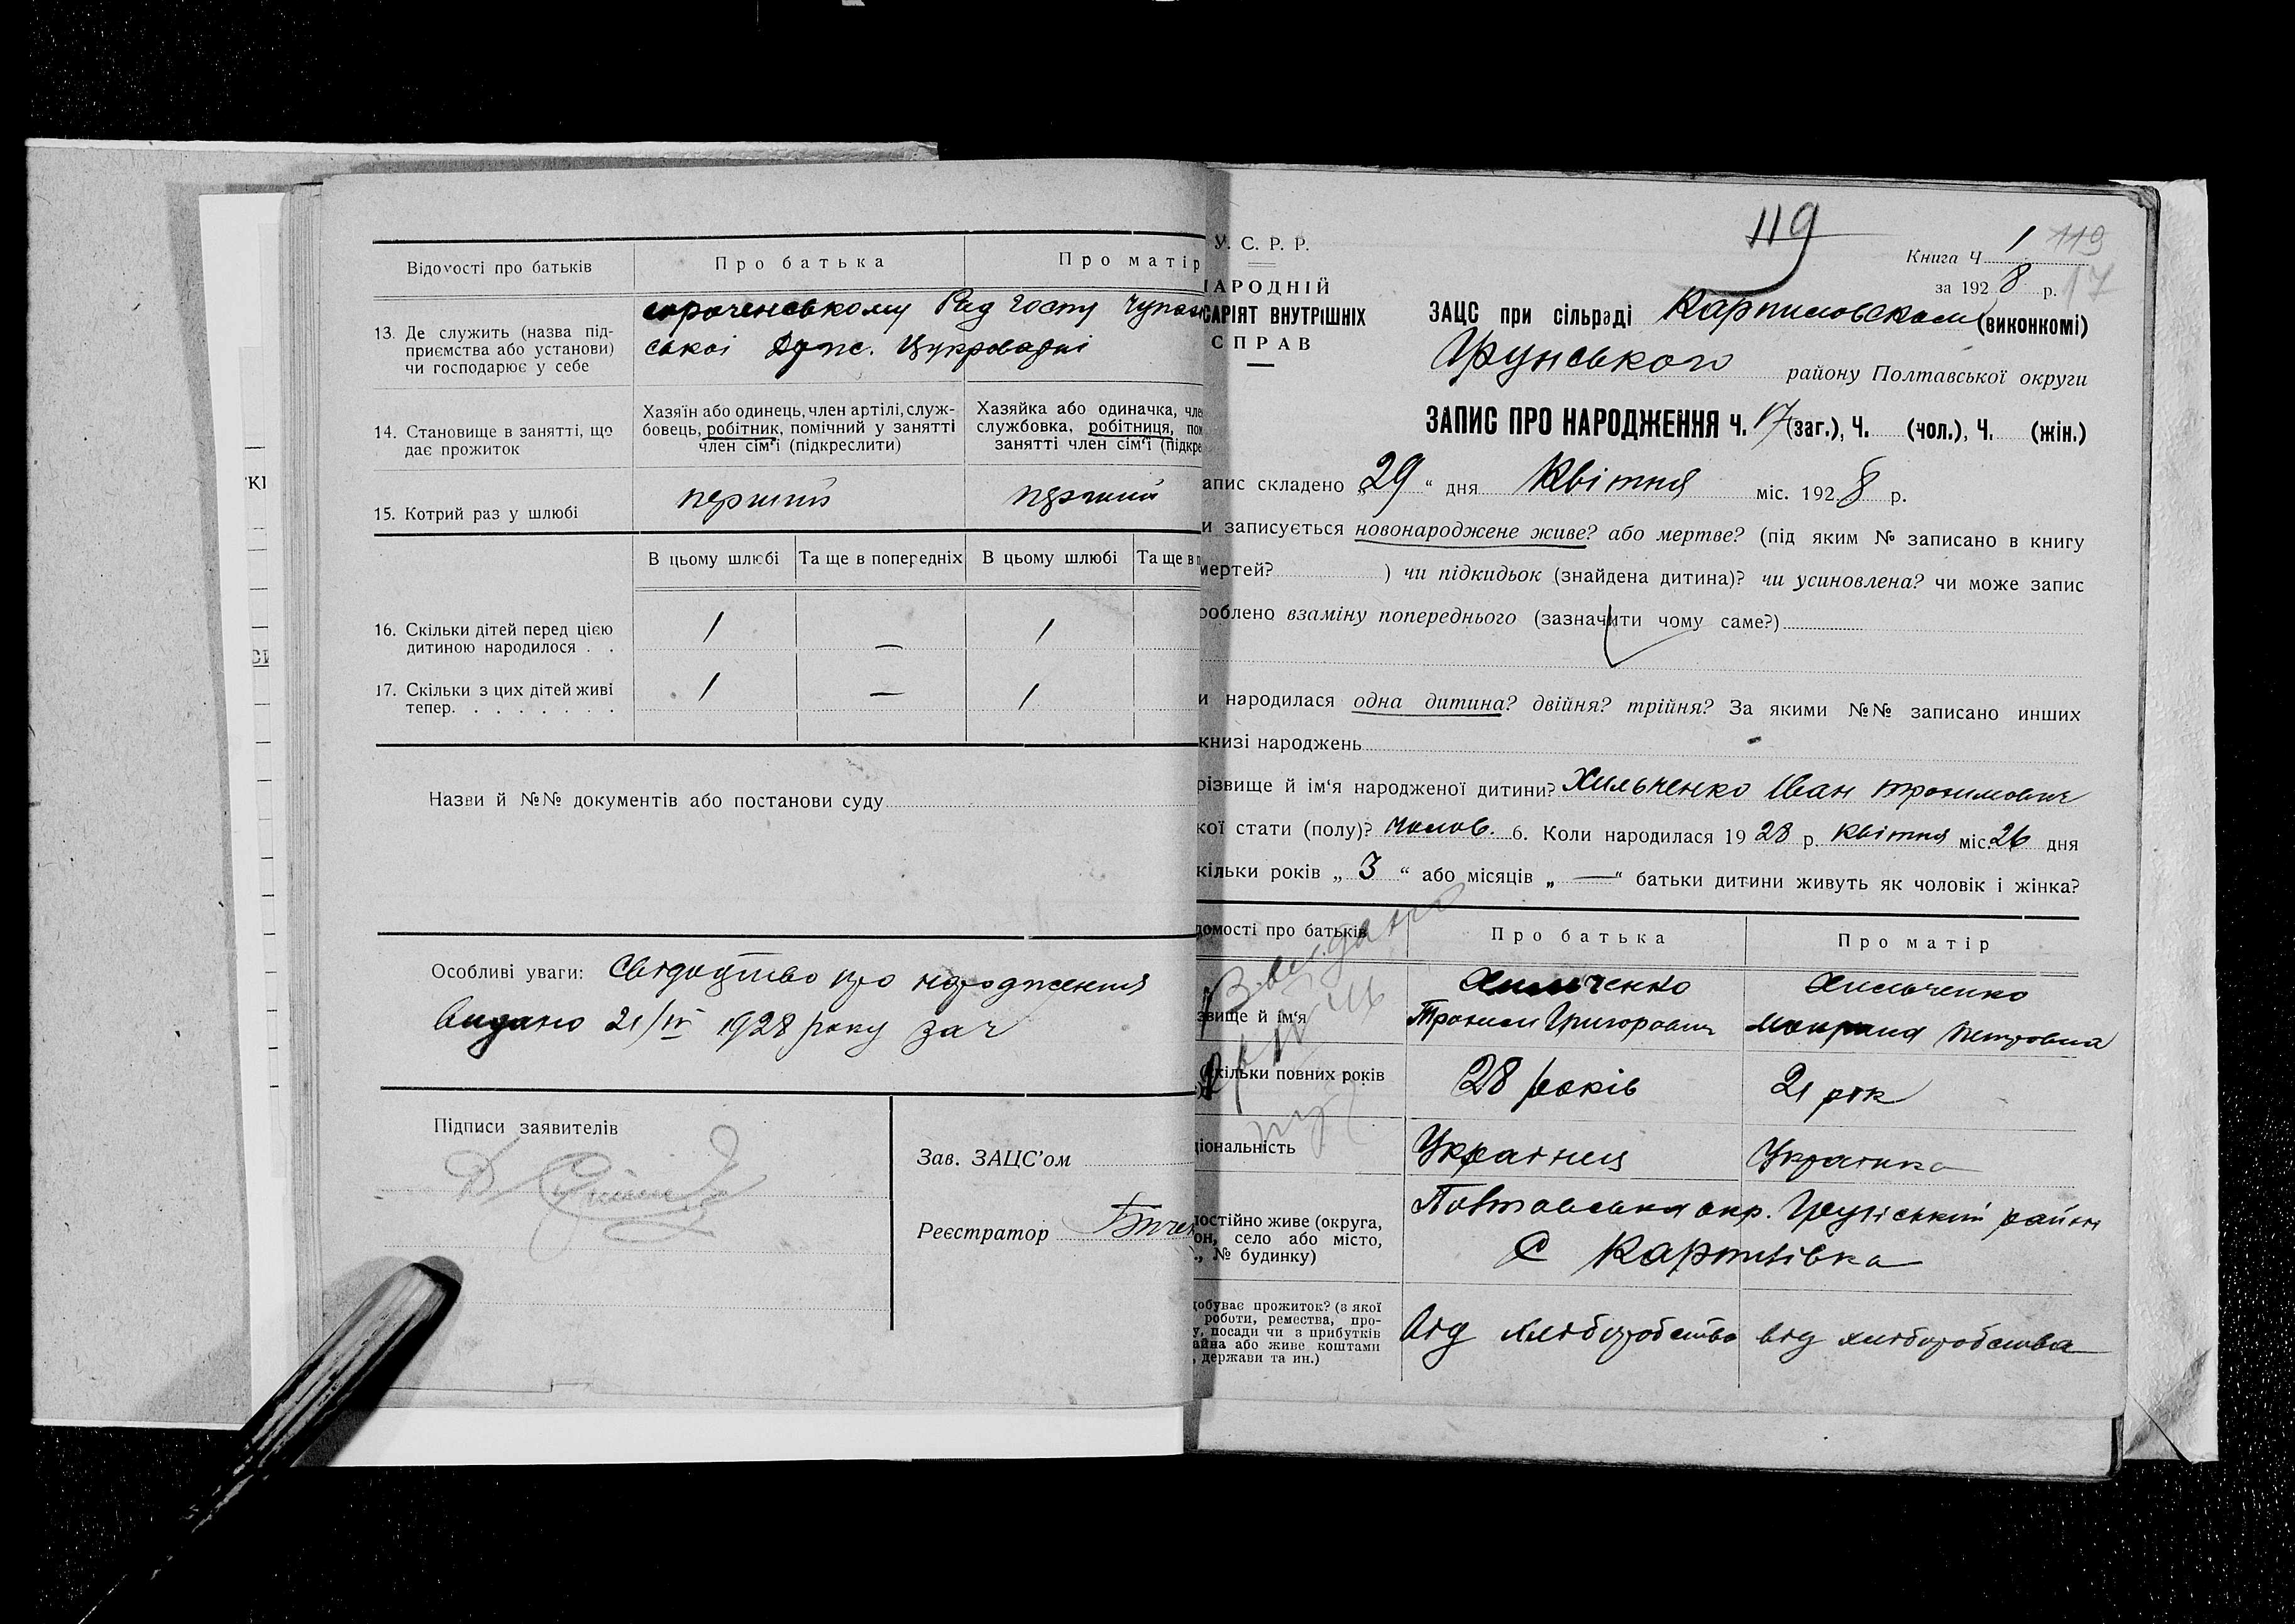 Відомості про батьків
Про батька
Про матір
13. Де служить (назва під-
приємства або установи)
чи господарює у себе
Рад госпу
ської Цукроварні
14. Становище в занятті, що
дає прожиток
Хазяїн або одинець, член артілі, служ-
бовець, робітник, помічний у занятті
член сім'ї (підкреслити)
Хазяйка або одиначка, чле
службовка, робітниця, пом
занятті член сім'ї (підкре
15. Котрий раз у шлюбі
перший
перший
В цьому шлюбі
Та ще в попередніх
В цьому шлюбі
Та ще в п
16. Скільки дітей перед цією
дитиною народилося . .
1
—
1
17. Скільки з цих дітей живі
тепер. . . . . . . .
1
—
1
Назви й №№ документів або постанови суду
Особливі уваги: Свідоцтво про народження
видано 21/IV 1928 року за ч
Підписи заявителів
Зав. ЗАЦС'ом
Реєстратор
У. С. Р. Р.
НАРОДНІЙ
САРІЯТ ВНУТРІШНІХ
СПРАВ
119
Книга Ч. 1 119
за 1928 р. 17
ЗАЦС при сільраді Карпиловском (виконкомі)
Грунського району Полтавської округи
ЗАПИС ПРО НАРОДЖЕННЯ Ч. 17 (заг.), Ч. (чол.), Ч. (жін.)
апис складено „29“ дня Квітня міс. 1928 р.
и записується новонароджене живе? або мертве? (під яким № записано в книгу
мертей? ) чи підкидьок (знайдена дитина)? чи усиновлена? чи може запис
роблено взаміну попереднього (зазначити чому саме?)
и народилася одна дитина? двійня? трійня? За якими №№ записано инших
книзі народжень
різвище й ім'я народженої дитини? Хильченко Іван Трохимович
кої стати (полу)? чолов. 6. Коли народилася 1928 р. квітня міс. 26 дня
кільки років „3“ або місяців „—“ батьки дитини живуть як чоловік і жінка?
домості про батьків
Про батька
Про матір
звище й ім'я
Хильченко
Трохим Григорович
Хильченко
Петровна
(скільки повних років
28 років
21 рік
ціональність
Українец
Українка
постійно живе (округа,
он, село або місто,
., № будинку)
Полтавська окр. Грунський район
С Карпилівка
добуває прожиток? (з якої
роботи, ремества, про-
у, посади чи з прибутків
айна або живе коштами
, держави та ин.)
від хліборобства
від хліборобства